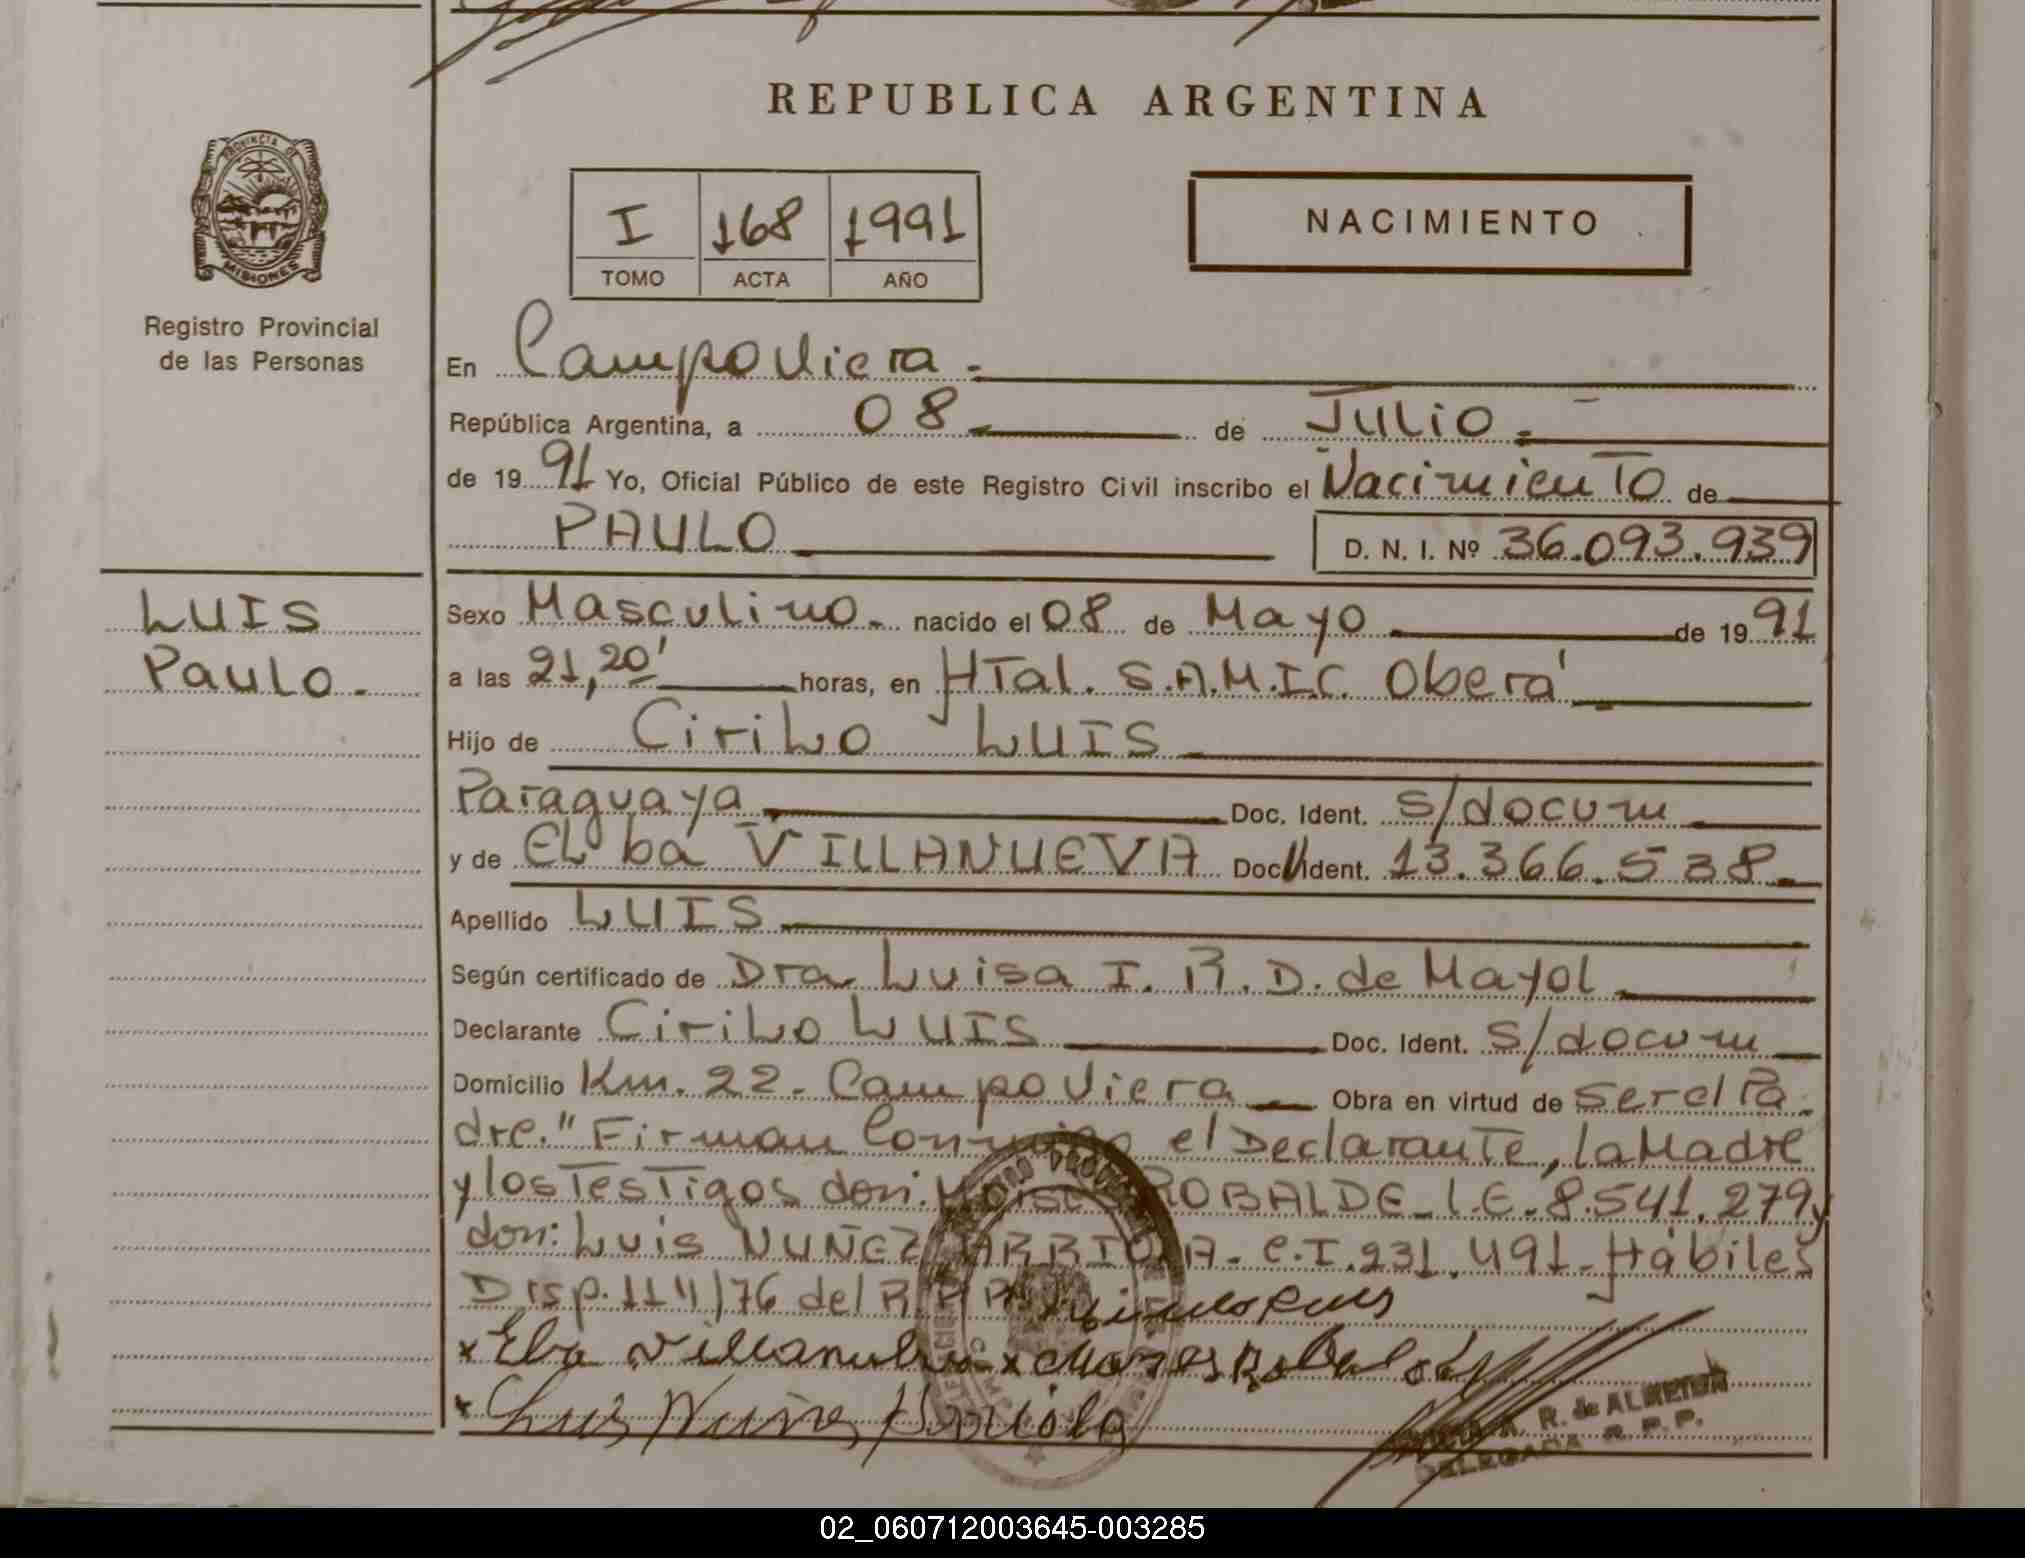 REPUBLICA ARGENTINA
PROVINCIA DE
MISIONES
Registro Provincial
de las Personas
I 168 1991
TOMO ACTA AÑO
NACIMIENTO
En Campo Viera.
República Argentina, a 08 de Julio.
de 1991 Yo, Oficial Público de este Registro Civil inscribo el Nacimiento de
PAULO D. N. I. Nº 36.093.939
LUIS
Paulo.
Sexo Masculino. nacido el 08 de Mayo de 1991
a las 21,20' horas, en HTal. S.A.M.I.C. Oberá
Hijo de Cirilo LUIS
Paraguaya Doc. Ident. s/docum
y de Elba VILLANUEVA Doc. Ident. 13.366.538.
Apellido LUIS
Según certificado de Dra Luisa I. R. D. de Mayol
Declarante Cirilo LUIS Doc. Ident. s/docum
Domicilio Km. 22. Campo Viera Obra en virtud de ser el Pa-
dre." Firman Conmigo el Declarante, la Madre
y los Testigos don: ROBALDE_L.E. 8.541.279 y
don: Luis NUÑEZ ARRIOLA - C.I. 231.491 - Hábiles
Disp. 111/76 del R.P.P.
x Elba Villanueva x Robalde
x Luis Nuñez Arriola
A. R. de ALMEIDA
DELEGADA R. P. P.
02_060712003645-003285